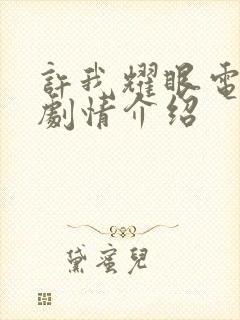 許我耀眼電
劇情介紹
黛蜜兒